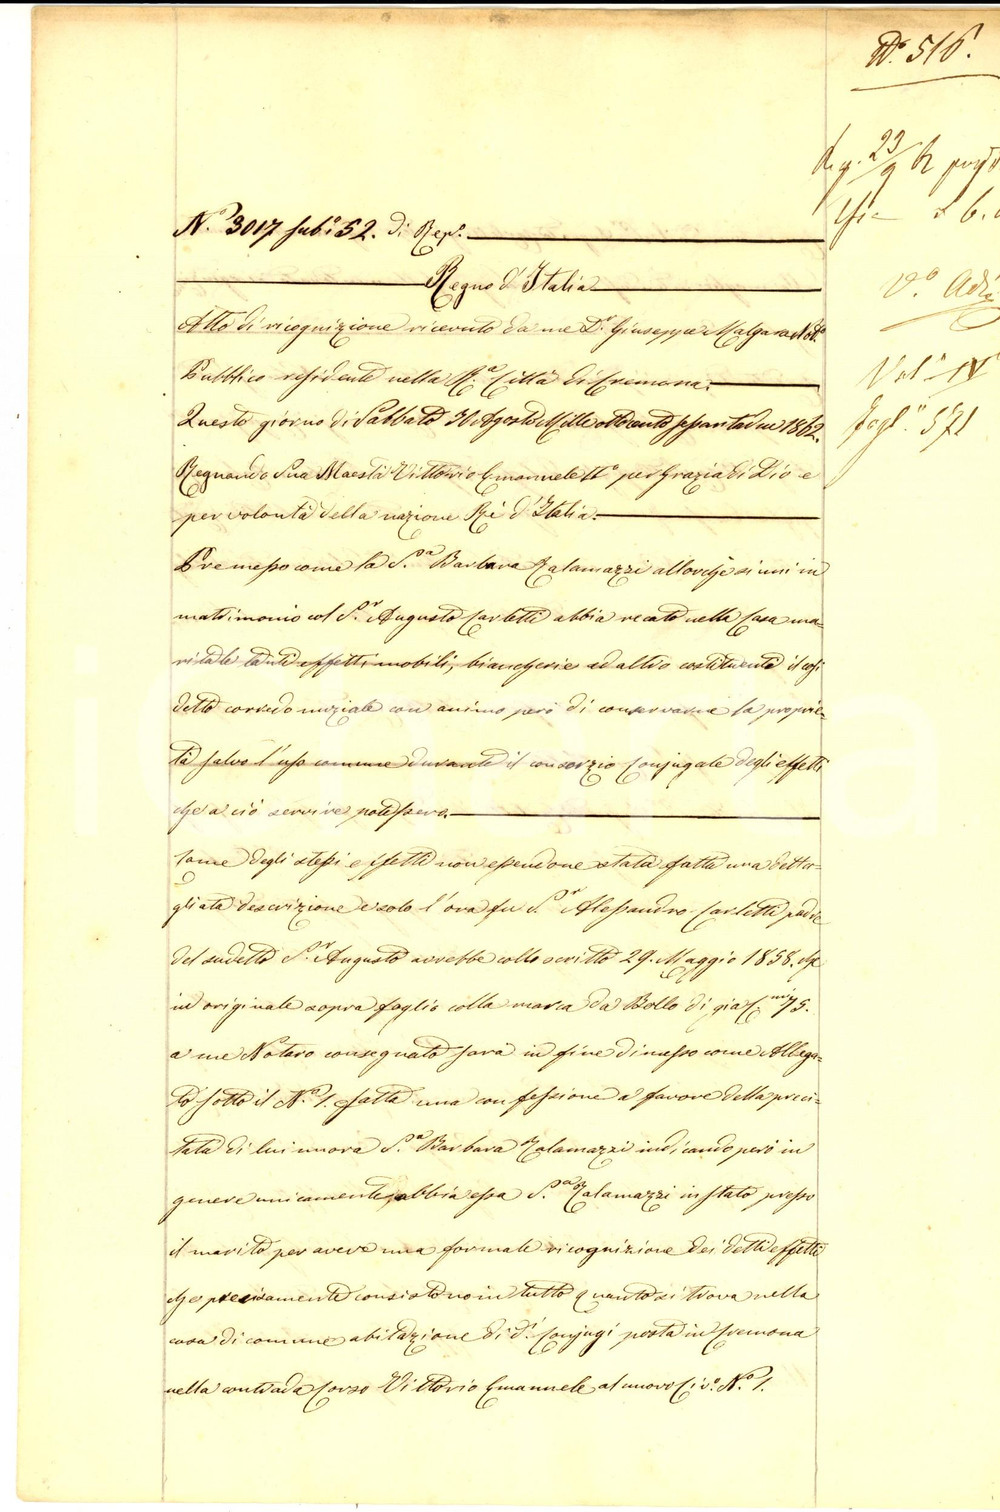 N.° 516.
N.° 3017 sub.° 52. di Rep.°
Regno d'Italia
Atto di ricognizione ricevuto da me D.r Giuseppe Malgara Not.°
Pubblico residente nella R.a Città di Cremona.
Questo giorno di Sabbato 30 Agosto Mille ottocento sessantadue 1862.
Regnando Sua Maestà Vittorio Emanuele II.° per Grazia di Dio e
per volontà della nazione Rè d'Italia.
Premesso come la S.ra Barbara Zalamazzi allorchè si unì in
matrimonio col S.r Augusto Carletti abbia recato nella Casa ma=
ritale tanti effetti mobili, biancherie ed altro costituente il così
detto corredo nuziale con animo però di conservarne la proprie=
tà salvo l'uso comune durante il consorzio Conjugale degli effetti
che a ciò servire potessero.
Come degli stessi effetti non essendone stata fatta una detta=
gliata descrizione e solo l'ora fu S.r Alessandro Carletti padre
del sudetto S.r Augusto avrebbe collo scritto 29. Maggio 1858. che
in originale sopra foglio colla marca da Bollo di già C.mi 75.
a me Notaro consegnato sarà in fine dimesso come Allega=
to sotto il N.° 1. fatta una confessione a favore della preci=
tata di lui nuora S.ra Barbara Zalamazzi indicando però in
genere unicamente, abbia essa S.ra Zalamazzi instato presso
il marito per avere una formale ricognizione dei detti effetti
che precisamente consistono in tutto quanto si trova nella
casa di comune abitazione di d.i Conjugi posta in Cremona
nella contrada Corso Vittorio Emanuele al nuovo Civ.° N.° 1.
Reg. 23/9
V.°
Vol.e IV
Fogl.° 571